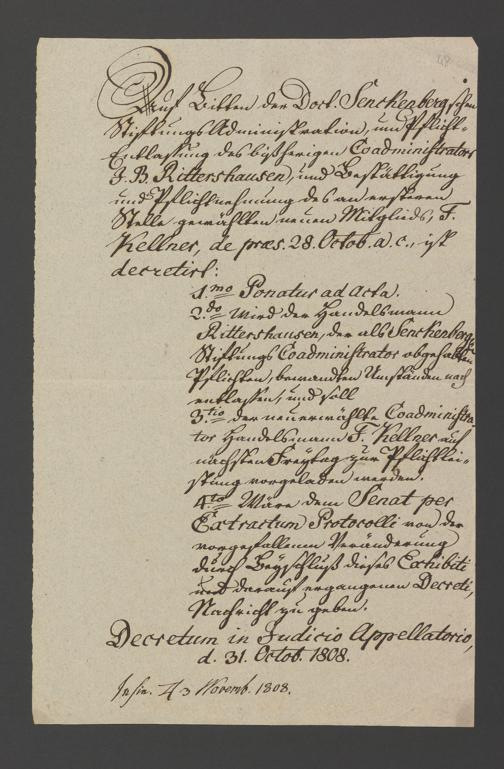 Auf Bitten der Doct. Senckenbergischen
Stiftungs Administration, um Pflicht-
Entlassung des bißherigen Coadministrators
J. B. Rittershausen, und Bestättigung
und Pflichtnehmung des an ersteren
Stelle gewählten neuen Mitglieds, F.
Kellner, de præs. 28. Octob. a. c., ist
decretirt:
1.mo Ponatur ad Acta.
2.do Wird der Handelsmann
Rittershausen, der als Senckenberg.
Stiftungs Coadministrator abgehabten
Pflichten, bewandten Umständen nach
entlassen, und soll
3.tio der neuerwählte Coadministra-
tor Handelsmann F. Kellner auf
nächsten Freytag zur Pflichtlei-
stung vorgeladen werden.
4.to Wäre dem Senat per
Extractum Protocolli von der
vorgefallenen Veränderung
durch Beyschluß dieses Exhibiti
und darauf ergangenen Decreti,
Nachricht zu geben.
Decretum in Judicio Appellatorio,
d. 31. Octob. 1808.
3 Novemb. 1808.